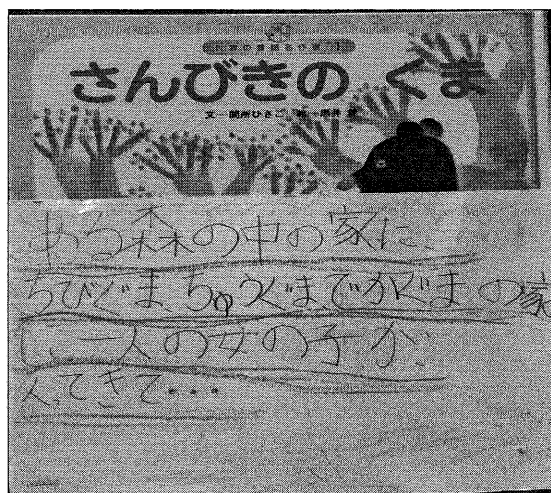 さんびきの くま
文―関所ひさこ
ある森の中の家に、
ちびぐまちゅうぐまでかぐまの家
に、一人の女の子が、
入ってきて・・・